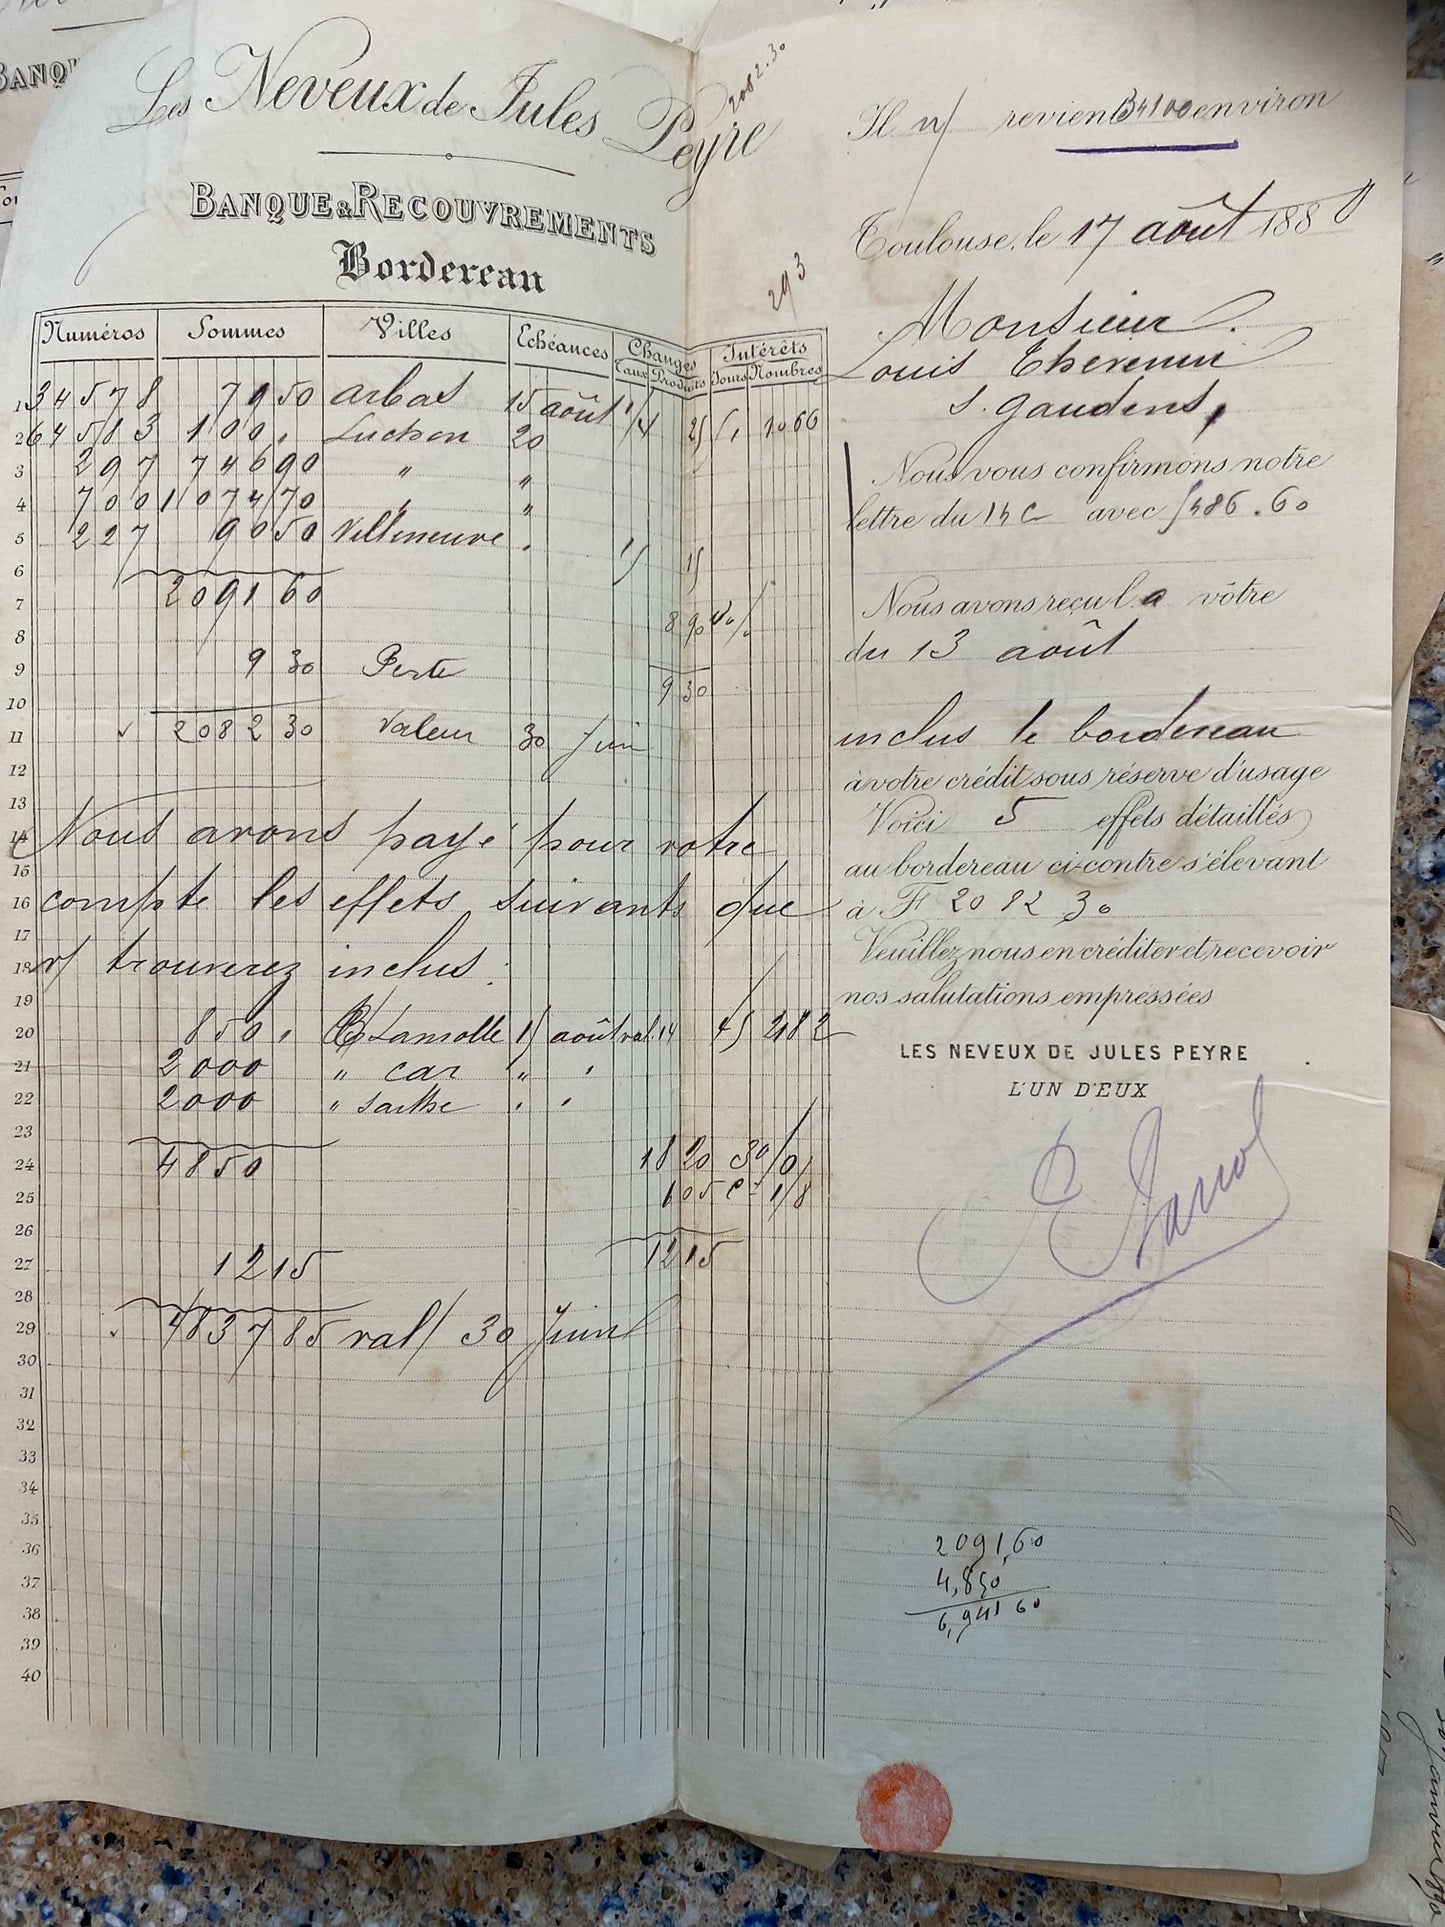 Les Neveux de Jules Peyre
2082.30
BANQUE & RECOUVREMENTS
Bordereau
293
Numéros Sommes Villes Echéances Changes Intérêts
Taux Produits Jours Nombres
1 34578 79 50 Arbas 15 août 1/4
2 64583 100 " Luchon 20 25
3 297 746 90 " "
4 700 1074 70 " "
5 227 90 50 Villeneuve " 15
6 2091 60
7 8 90
8
9 9 30 Perte 9 30
10
11 2082 30 Valeur 30 Juin
12
13
14 Nous avons payé pour votre
15
16 compte les effets suivants que
17
18 v/ trouverez inclus :
19
20 850 " Lamolle 15 août val. 14 45 2182
21 2000 " Car " "
22 2000 " " "
23
24 4850 18 20 3 0/0
25 6 05 Cn 1/8
26
27 12 15 12 15
28
29 4837 85 val/ 30 Juin
30
31
32
33
34
35
36
37
38
39
40
Il v/ revient environ
Toulouse, le 17 août 1880
Monsieur
Louis Thevenin
S. Gaudens
Nous vous confirmons notre
lettre du 14 C avec 486.60
Nous avons reçu l a vôtre
du 13 août
inclus le bordereau
à votre crédit sous réserve d'usage
Voici 5 effets détaillés
au bordereau ci-contre s'élevant
à F 2082 30
Veuillez nous en créditer et recevoir
nos salutations empressées
LES NEVEUX DE JULES PEYRE
L'UN D'EUX
2091,60
4,850
6,941 60